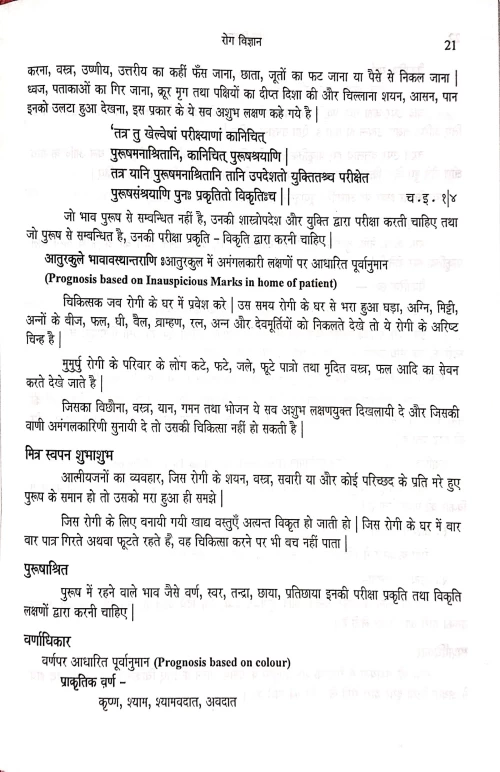 रोग विज्ञान
21
करना, वस्त्र, उष्णीय, उत्तरीय का कहीं फँस जाना, छाता, जूतों का फट जाना या पैसे से निकल जाना |
ध्वज, पताकाओं का गिर जाना, क्रूर मृग तथा पक्षियों का दीप्त दिशा की और चिल्लाना शयन, आसन, पान
इनको उलटा हुआ देखना, इस प्रकार के ये सव अशुभ लक्षण कहे गये है |
'तत्र तु खेल्वेषां परीक्ष्याणां कानिचित्
पुरूषमनाश्रितानि, कानिचित् पुरूषश्रयाणि |
तत्र यानि पुरूषमनाश्रितानि तानि उपदेशतो युक्तितश्च्च परीक्षेत
पुरूषसंश्रयाणि पुनः प्रकृतितो विकृतिःच | | च.इ. १|४
जो भाव पुरूप से सम्वन्धित नहीं है, उनकी शास्त्रोपदेश और युक्ति द्वारा परीक्षा करती चाहिए तथा
जो पुरूप से सम्वन्धित है, उनकी परीक्षा प्रकृति - विकृति द्वारा करनी चाहिए |
आतुरकुले भावावस्थान्तराणि ःआतुरकुल में अमंगलकारी लक्षणों पर आधारित पूर्वानुमान
(Prognosis based on Inauspicious Marks in home of patient)
चिकित्सक जव रोगी के घर में प्रवेश करे | उस समय रोगी के घर से भरा हुआ घड़ा, अग्नि, मिट्टी,
अन्नों के वीज, फल, घी, वैल, व्राम्हण, रत्न, अन्न और देवमूर्तियों को निकलते देखे तो ये रोगी के अरिष्ट
चिन्ह है |
मुमुर्पु रोगी के परिवार के लोग कटे, फटे, जले, फूटे पात्रो तथा मृदित वस्त्र, फल आदि का सेवन
करते देखे जाते है |
जिसका विछौना, वस्त्र, यान, गमन तथा भोजन ये सव अशुभ लक्षणयुक्त दिखलायी दे और जिसकी
वाणी अमंगलकारिणी सुनायी दे तो उसकी चिकित्सा नहीं हो सकती है |
मित्र स्वपन शुभाशुभ
आत्मीयजनों का व्यवहार, जिस रोगी के शयन, वस्त्र, सवारी या और कोई परिच्छद के प्रति मरे हुए
पुरूप के समान हो तो उसको मरा हुआ ही समझे |
जिस रोगी के लिए वनायी गयी खाद्य वस्तुएँ अत्यन्त विकृत हो जाती हो | जिस रोगी के घर में वार
वार पात्र गिरते अथवा फूटते रहते हैं, वह चिकित्सा करने पर भी वच नहीं पाता |
पुरूषाश्रित
पुरूष में रहने वाले भाव जैसे वर्ण, स्वर, तन्द्रा, छाया, प्रतिछाया इनकी परीक्षा प्रकृति तथा विकृति
लक्षणों द्वारा करनी चाहिए |
वर्णाधिकार
वर्णपर आधारित पूर्वानुमान (Prognosis based on colour)
प्राकृतिक व़र्ण -
कृष्ण, श्याम, श्यामवदात, अवदात